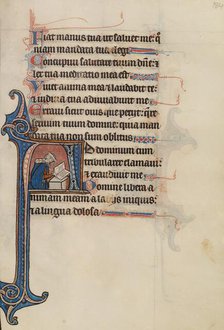 Fiat manus tua ut saluet me: qm
iam mandata tua elegi
Concupiui salutare tuum dne: et
et lex tua meditatio mea est
Uiuet anima mea et laudabit te:
et iudicia tua adiuuabunt me
Erraui sicut ouis que periit: que
re seruum tuum domine: quia man
data tua non sum oblitus
Ad dominum cum
tribularer clamaui:
et exaudiuit me
Domine libera a
nimam meam a labiis iniquis:
et a lingua dolosa